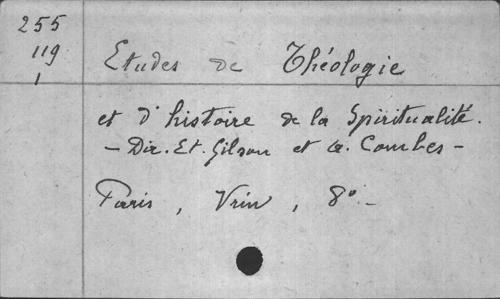 255
119
1
Etudes de Théologie
et d'histoire de la Spiritualité.
- Dir. Et. Gilson et A. Combes -
Paris, Vrin, 8° -